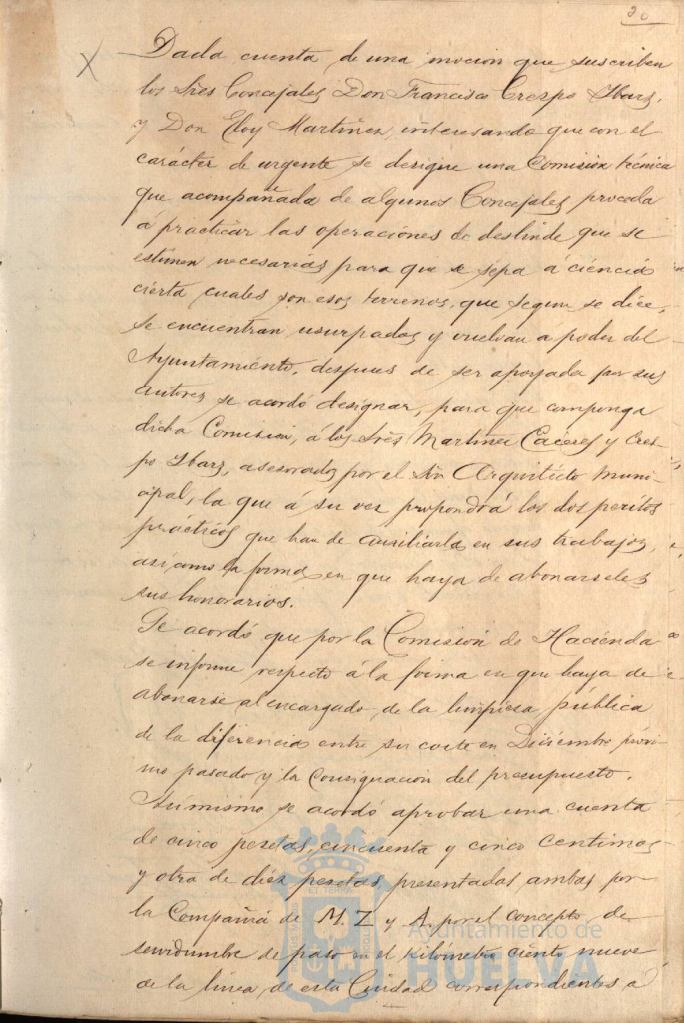 20
X Dada cuenta de una mocion que suscriben
los Sres Concejales Don Francisco Crespo Ybarz,
y Don Eloy Martinez, interesando que con el
carácter de urgente se designe una Comisión técnica
que acompañada de algunos Concejales, se proceda
á practicar las operaciones de deslinde que se
estimen necesarias para que se sepa á ciencia
cierta cuales son esos terrenos, que segun se dice,
se encuentran usurpados y vuelvan a poder del
Ayuntamiento, despues de ser apoyada por sus
autores se acordó designar, para que componga
dicha Comision, á los Sres Martinez Cáceres y Cres-
po Ybarz, asesorados por el Sor Arquitecto Muni-
cipal, la que á su vez propondrá los dos peritos
prácticos que han de auxiliarla en sus trabajos,
así como la forma en que haya de abonarseles
sus honorarios.
Se acordó que por la Comisión de Hacienda
se informe respecto á la forma en que haya de
abonarse al encargado de la limpieza pública
de la diferencia entre su coste en Diciembre próxi-
mo pasado y la consignacion del presupuesto.
Asimismo se acordó aprobar una cuenta
de cinco pesetas, cincuenta y cinco centimos
y otra de diez pesetas, presentadas ambas por
la Compañia de M. Z y A, por el concepto de
servidumbre de paso en el Kilómetro ciento nueve
de la linea de esta Ciudad correspondientes á
Ayuntamiento de
HUELVA